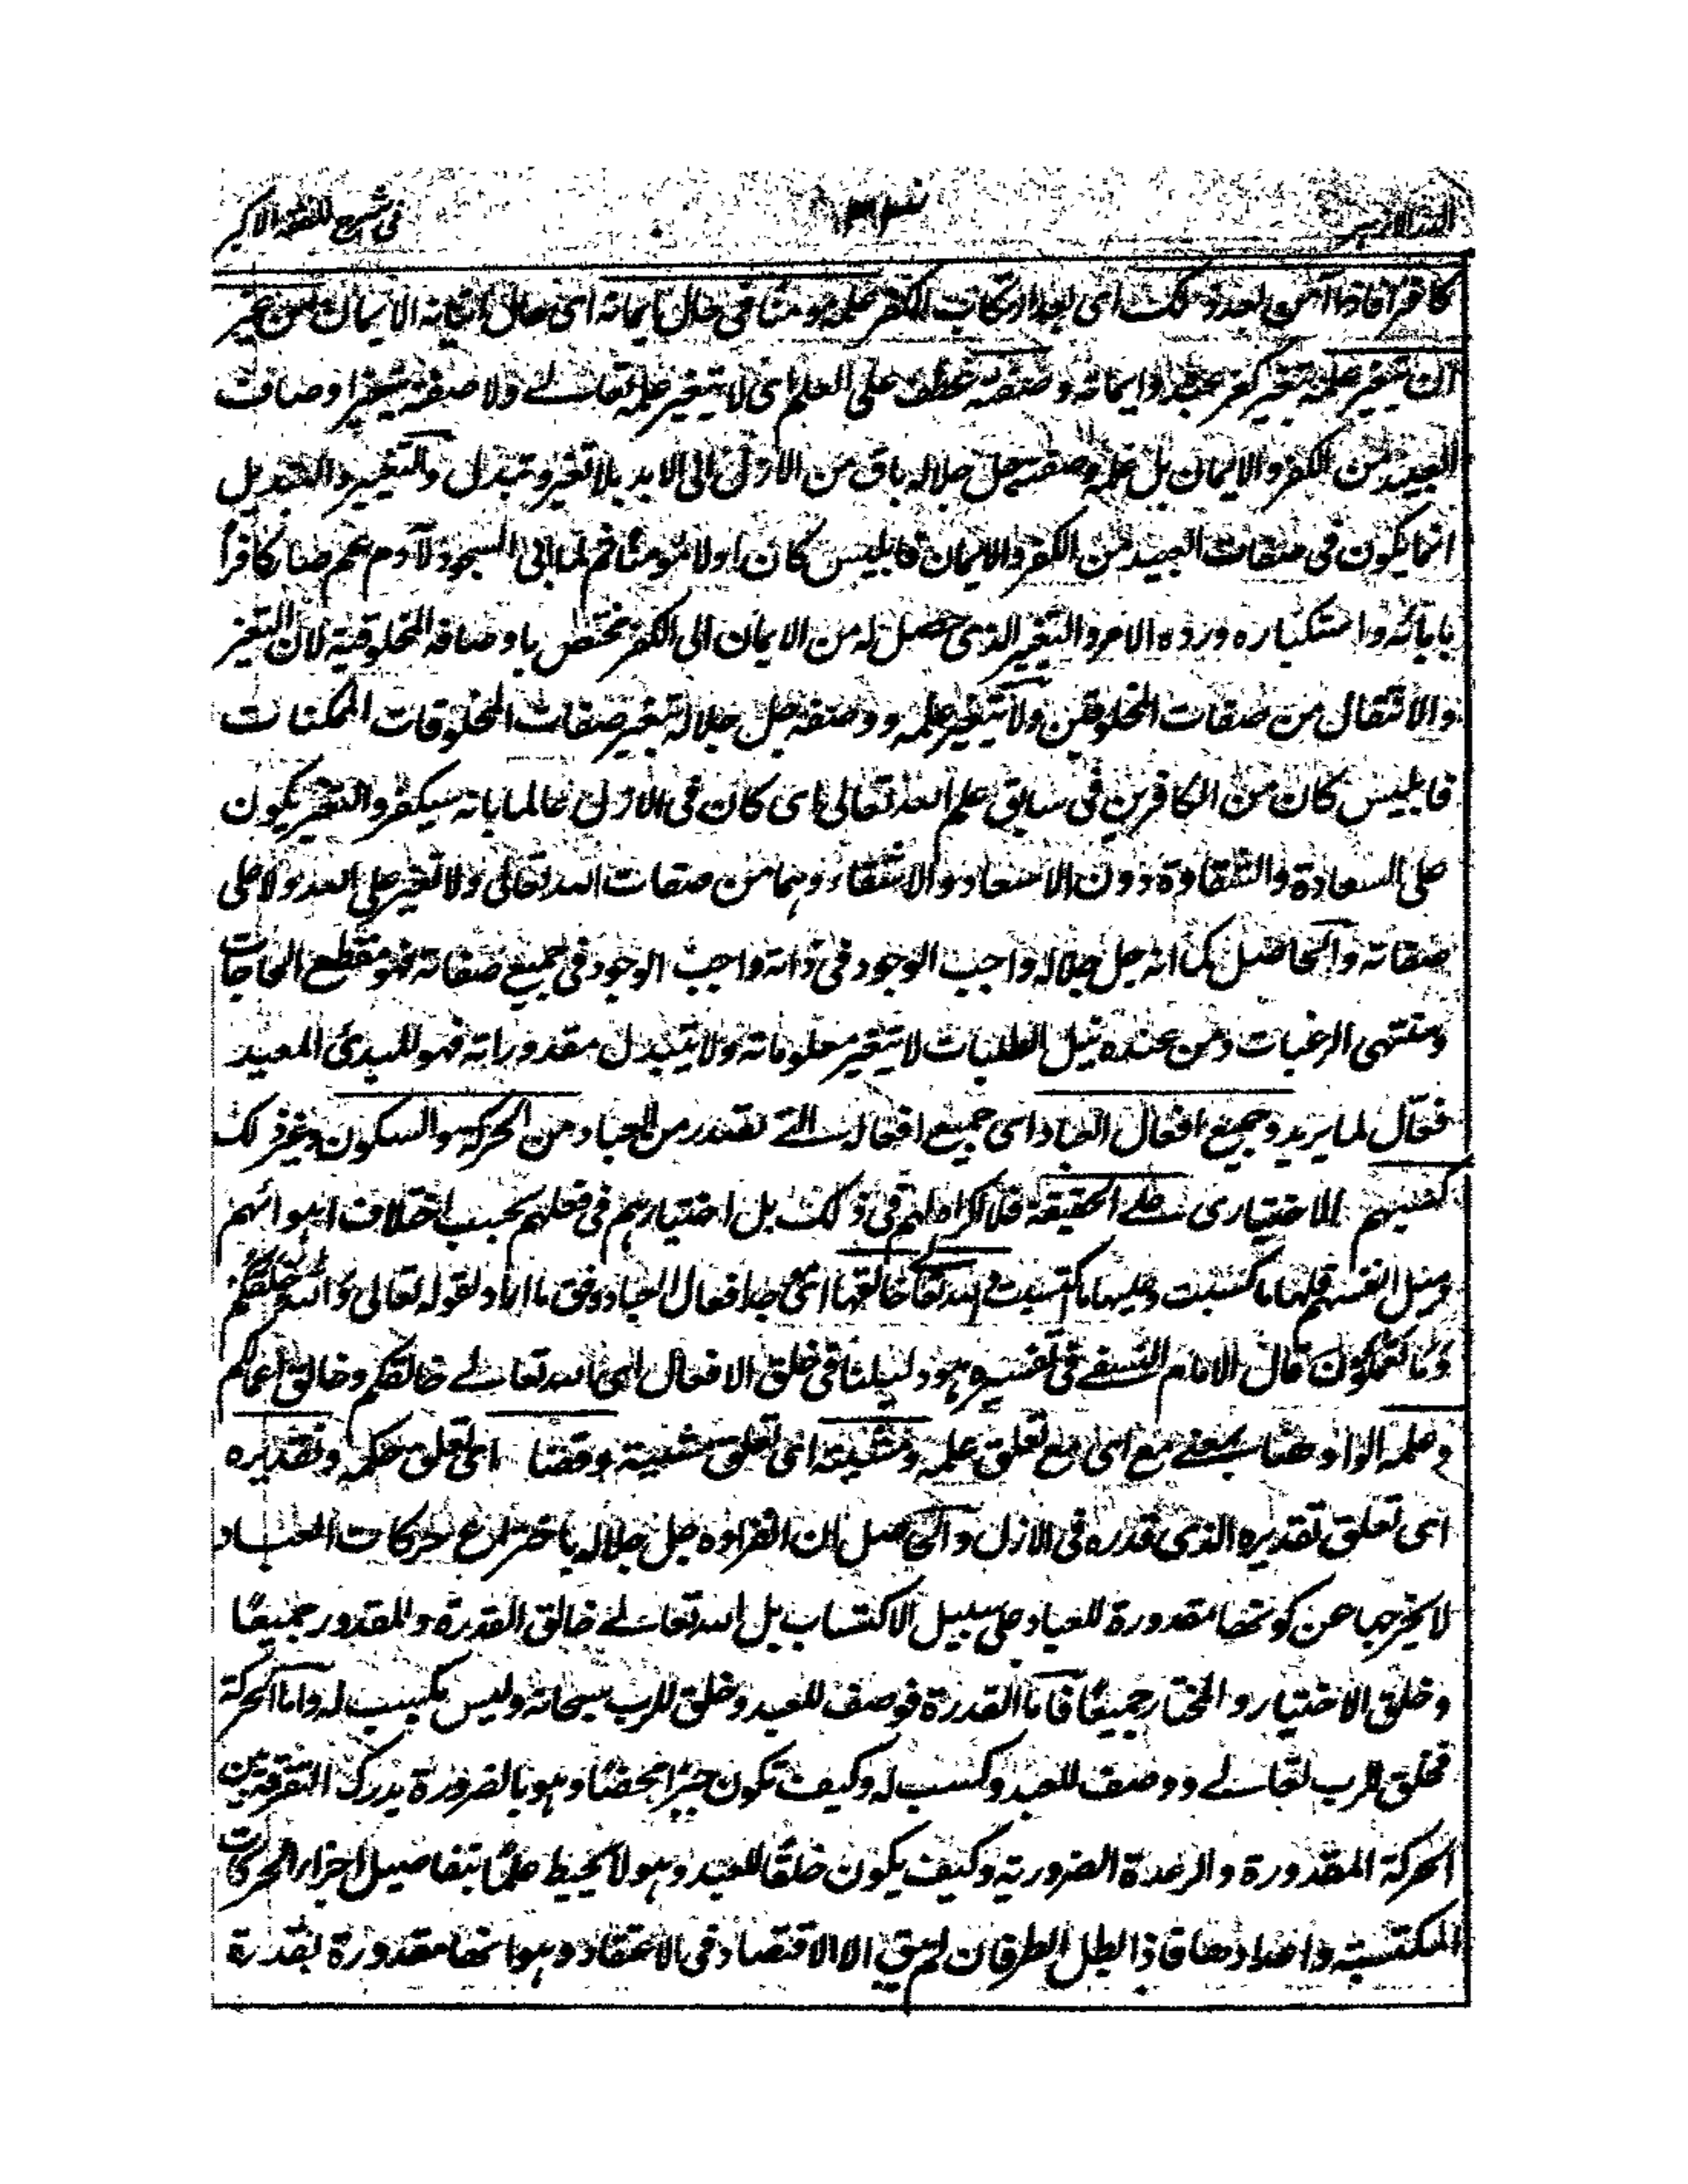 الدر الازهر ٣٣ في شرح الفقه الاكبر
كافرا فاذا آمن بعد ذلك اى بعد ارتكاب الكفر علمه مومنا فى حال ايمانه اى حال اتيانه الايمان من غير
ان يتغير علمه بتغير كفر عبده وايمانه وصفته عطف على العلم اى لا يتغير علمه تعالى ولا صفته بتغير اوصاف
العبيد من الكفر والايمان بل علمه وصفته جل جلاله باق من الازل الى الابد بلا تغير وتبدل والتغيير والتبديل
انما يكون فى صفات العبيد من الكفر والايمان فابليس كان اولا مومنا ثم لما ابى السجود لآدم عم صار كافراً
بابائه واستكباره ورده الامر والتغير الذى حصل له من الايمان الى الكفر مختص باوصافه المخلوقية لان التغير
والانتقال من صفات المخلوقين ولا يتغير علمه ووصفه جل جلاله بتغير صفات المخلوقات الممكنات
فابليس كان من الكافرين فى سابق علم الله تعالى اى كان فى الازل عالما بانه سيكفر والتغير يكون
على السعادة والشقاوة دون الاسعاد والاشقاء وهما من صفات الله تعالى ولا تغير على الله ولا على
صفاته والحاصل انه جل جلاله واجب الوجود فى ذاته واجب الوجود فى جميع صفاته فهو مقطع الحاجات
ومنتهى الرغبات ومن عنده نيل الطلبات لا يتغير معلوماته ولا يتبدل مقدوراته فهو المبدئ المعيد
فعال لما يريد وجميع افعال العباد اى جميع افعال التى تصدر من العباد من الحركة والسكون وغير ذلك
كسبهم الاختيارى على الحقيقة فلا اكراه لهم فى ذلك بل اختيارهم فى فعلهم بحسب اختلاف اهوائهم
وميل انفسهم فلها ما كسبت وعليها ما اكتسبت والله تعالى خالقها اى موجد افعال العباد وفق ما اراد لقوله تعالى وَاللهُ خَلَقَكُمْ
وَمَا تَعْمَلُوْنَ قال الامام النسفے فى تفسيره هو دليلنا فى خلق الافعال اى الله تعالے خالقكم وخالق اعمالكم
وعلمه الواو هنا بمعنے مع اى مع تعلق علمه ومشيئته اى تعلق مشيته وقضا اى تعلق حكمه وتقديره
اى تعلق تقديره الذى قدره فى الازل والحاصل ان انفراده جل جلاله باختراع حركات العباد
لا يخرجها عن كونها مقدورة للعباد على سبيل الاكتساب بل الله تعالے خالق القدرة والمقدور جميعًا
وخلق الاختيار والمختار جميعًا فاما القدرة فوصف للعبد وخلق للرب سبحانه وليس بكسب له واما الحركة
فخلق للرب تعالے ووصف للعبد وكسب له وكيف تكون جبرًا محضًا وهو بالضرورة يدرك التفرقة بين
الحركة المقدورة والرعدة الضرورية وكيف يكون خلقًا للعبد وهو لا يحيط علمًا بتفاصيل اجزاء الحركات
المكتسبة واعدادها فاذا بطل الطرفان لم يبق الا الاقتصاد فى الاعتقاد وهو انها مقدورة بقدرة